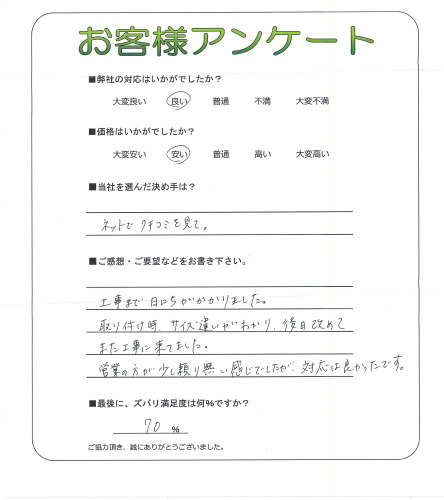 お客様アンケート
■弊社の対応はいかがでしたか？
大変良い 良い 普通 不満 大変不満
■価格はいかがでしたか？
大変安い 安い 普通 高い 大変高い
■当社を選んだ決め手は？
ネットで クチコミを見て。
■ご感想・ご要望などをお書き下さい。
工事まで 日にちがかかりました。
取り付け時、サイズ違いがわかり、後日改めて
また工事に来てました。
営業の方が少し頼り無い感じでしたが、対応は良かったです。
■最後に、ズバリ満足度は何％ですか？
70 ％
ご協力頂き、誠にありがとうございました。